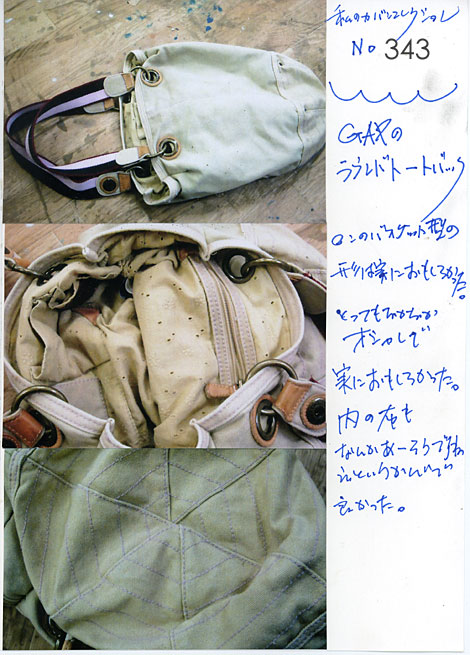 私のカバンコレクション
No 343
GAPの
ラウンドトートバック
ロンのバスケット型の
形は実におもしろかった。
とってもなかなか
オシャレで
実におもしろかった。
内の布も
なんか
良かった。